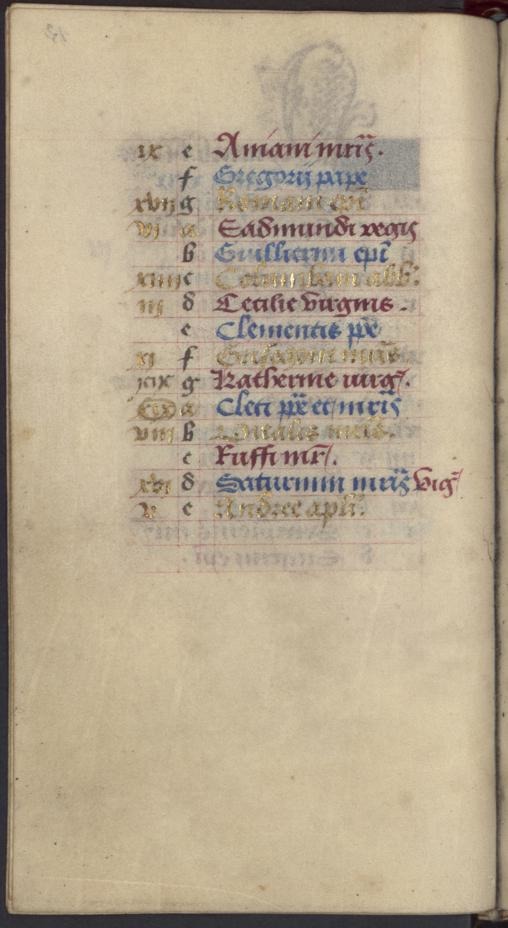 ix e Aniani mris.
f Gregorij pape
xvij g Romani epi
vj a Eadmundi regis
b Guillermi epi
xiiij c Columbani abb.
iij d Cecilie virginis.
e Clementis ppe
xj f mris.
xix g Katherine virg.
a Cleti ppe et mris
viij b Vitalis
c Ruffi mr.
xvj d Saturnini mris Vig
v e Andree apli.